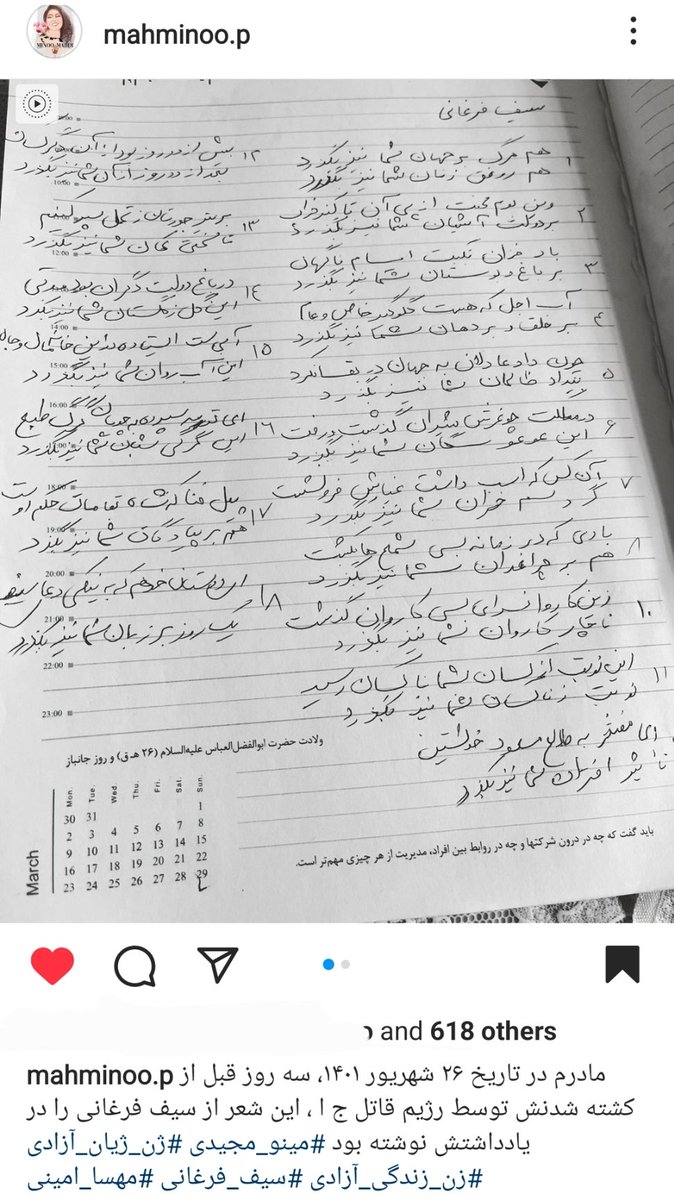 mahminoo.p
MINOO MAJIDI
سیف فرغانی
۱ هم مرگ بر جهان شما نیز بگذرد
هم رونق زمان شما نیز بگذرد
۲ وین بوم محنت از پی آن تا کند خراب
بر دولت آشیان شما نیز بگذرد
۳ باد خزان نکبت ایام ناگهان
بر باغ و بوستان شما نیز بگذرد
۴ آب اجل که هست گلوگیر خاص و عام
بر حلق و بر دهان شما نیز بگذرد
۵ چون داد عادلان به جهان در بقا نکرد
بیداد ظالمان شما نیز بگذرد
۶ در مملکت چو غرش شیران گذشت و رفت
این عوعو سگان شما نیز بگذرد
۷ آن کس که اسب داشت غبارش فرو نشست
گرد سم خران شما نیز بگذرد
۸ بادی که در زمانه بسی شمع ها بکشت
هم بر چراغدان شما نیز بگذرد
۱۰ زین کاروانسرای بسی کاروان گذشت
ناچار کاروان شما نیز بگذرد
۱۱ این نوبت از کسان بشما ناکسان رسید
نوبت ز ناکسان شما نیز بگذرد
ای مفتخر به طالع مسعود خویشتن
تأثیر اختران شما نیز بگذرد
۱۲ بیش از دو روز بود از آن دگر کسان
بعد از دو روز از آن شما نیز بگذرد
۱۳ بر تیر جورتان ز تحمل سپر کنیم
تا سختی کمان شما نیز بگذرد
۱۴ در باغ دولت دگران بود مدتی
این گل ز گلستان شما نیز بگذرد
۱۵ آبی ست ایستاده در این خانه مال و جاه
این آب روان شما نیز بگذرد
۱۶ ای تو رمه سپرده به چوپان گرگ طبع
این گرگی شبان شما نیز بگذرد
۱۷ پیل فنا که شاه بقا مات حکم اوست
هم بر پیادگان شما نیز بگذرد
۱۸ ای دوستان خوهم که به نیکی دعای سیف
یک روز بر زبان شما نیز بگذرد
10:00
12:00
14:00
15:00
16:00
18:00
19:00
20:00
21:00
22:00
23:00
ولادت حضرت ابوالفضل‌العباس علیه‌السلام (۲۶ هـ.ق) و روز جانباز
March
Mon. Tue. Wed. Thu. Fri. Sat. Sun.
30 31 1
2 3 4 5 6 7 8
9 10 11 12 13 14 15
16 17 18 19 20 21 22
23 24 25 26 27 28 29
باید گفت که چه در درون شرکتها و چه در روابط بین افراد، مدیریت از هر چیزی مهم‌تر است.
and 618 others
mahminoo.p مادرم در تاریخ ۲۶ شهریور ۱۴۰۱، سه روز قبل از
کشته شدنش توسط رژیم قاتل ج ا ، این شعر از سیف فرغانی را در
یادداشتش نوشته بود #مینو_مجیدی #ژن_ژیان_آزادی
#زن_زندگی_آزادی #سیف_فرغانی #مهسا_امینی